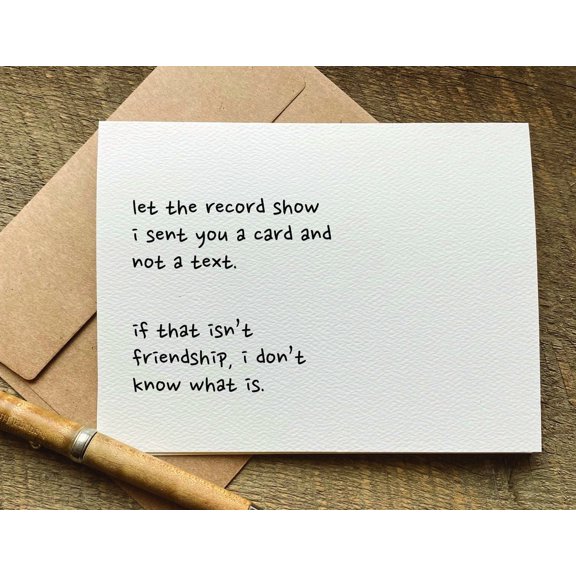 let the record show
i sent you a card and
not a text.
if that isn't
friendship, i don't
know what is.